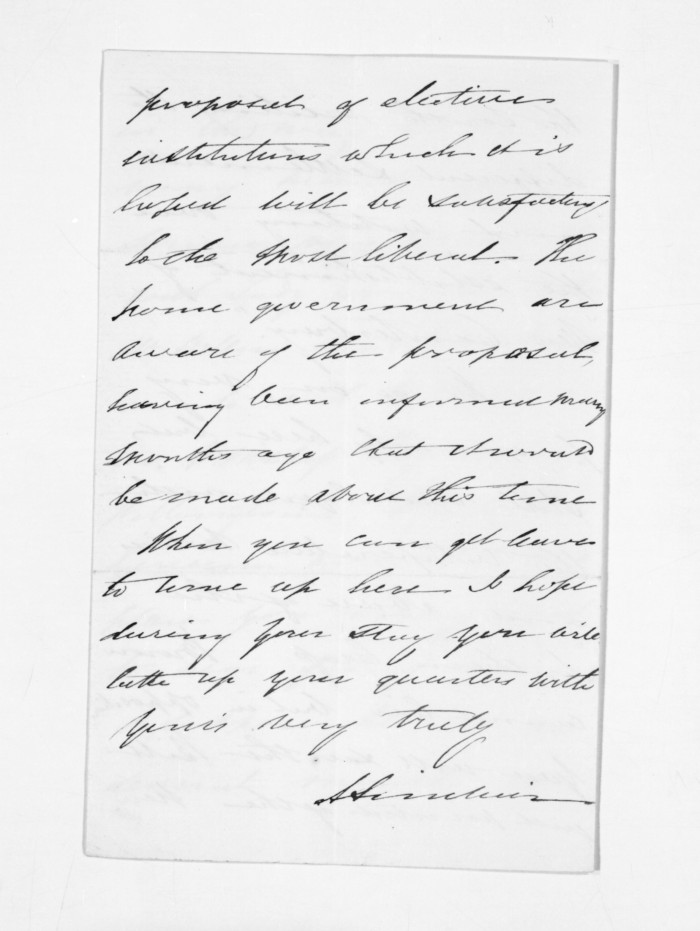 proposal of elective
institutions which it is
hoped will be satisfactory
to the most liberal. The
home government are
aware of the proposal,
having been informed many
months ago that it would
be made about this time
When you can get leave
to come up here I hope
during your stay you will
take up your quarters with
yours very truly
A Sinclair